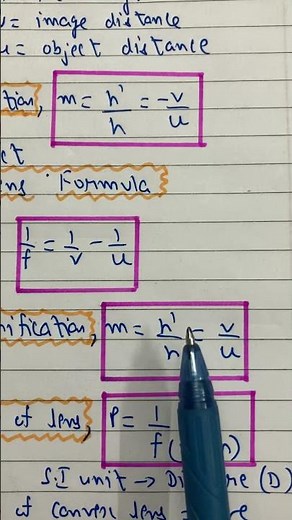 v = image distance
u = object distance
tion, m = h'/h = -v/u
ct
ens Formula
1/f = 1/v - 1/u
nification, m = h'/h = v/u
of lens, P = 1/f (
S.I unit → Di re (D)
of convex lens =